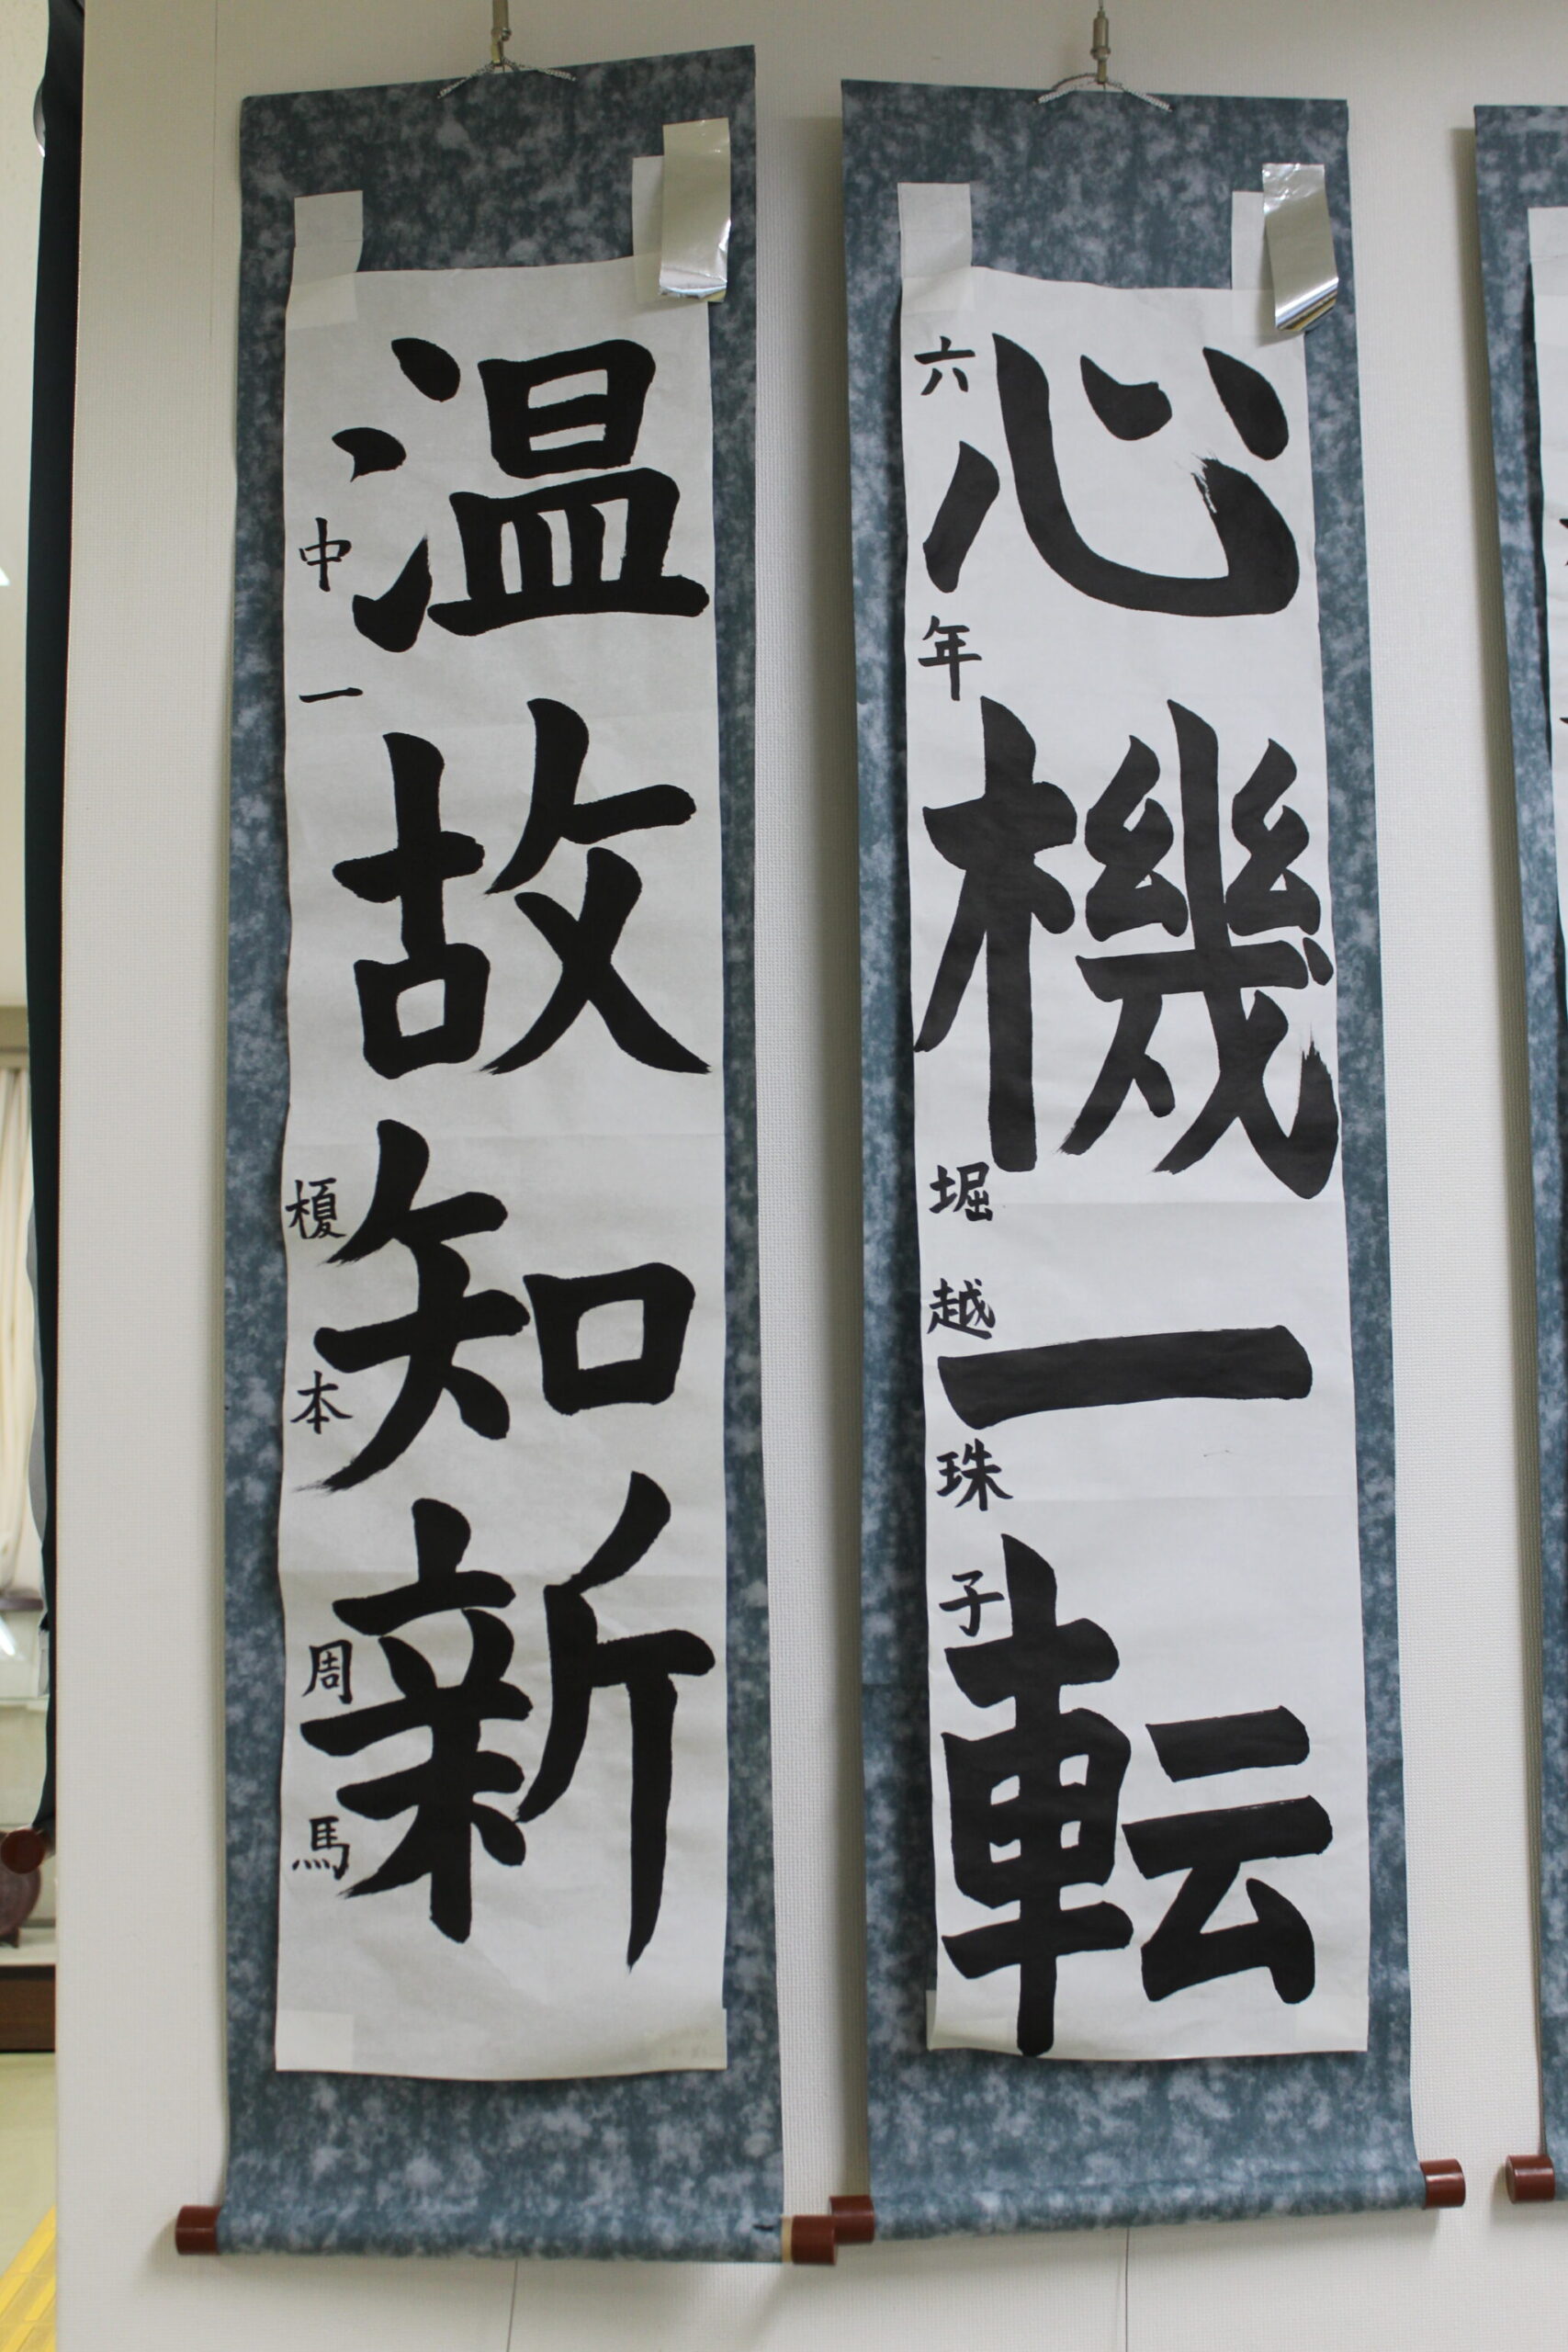 心機一転
六年 堀越珠子
温故知新
中一 榎本周馬